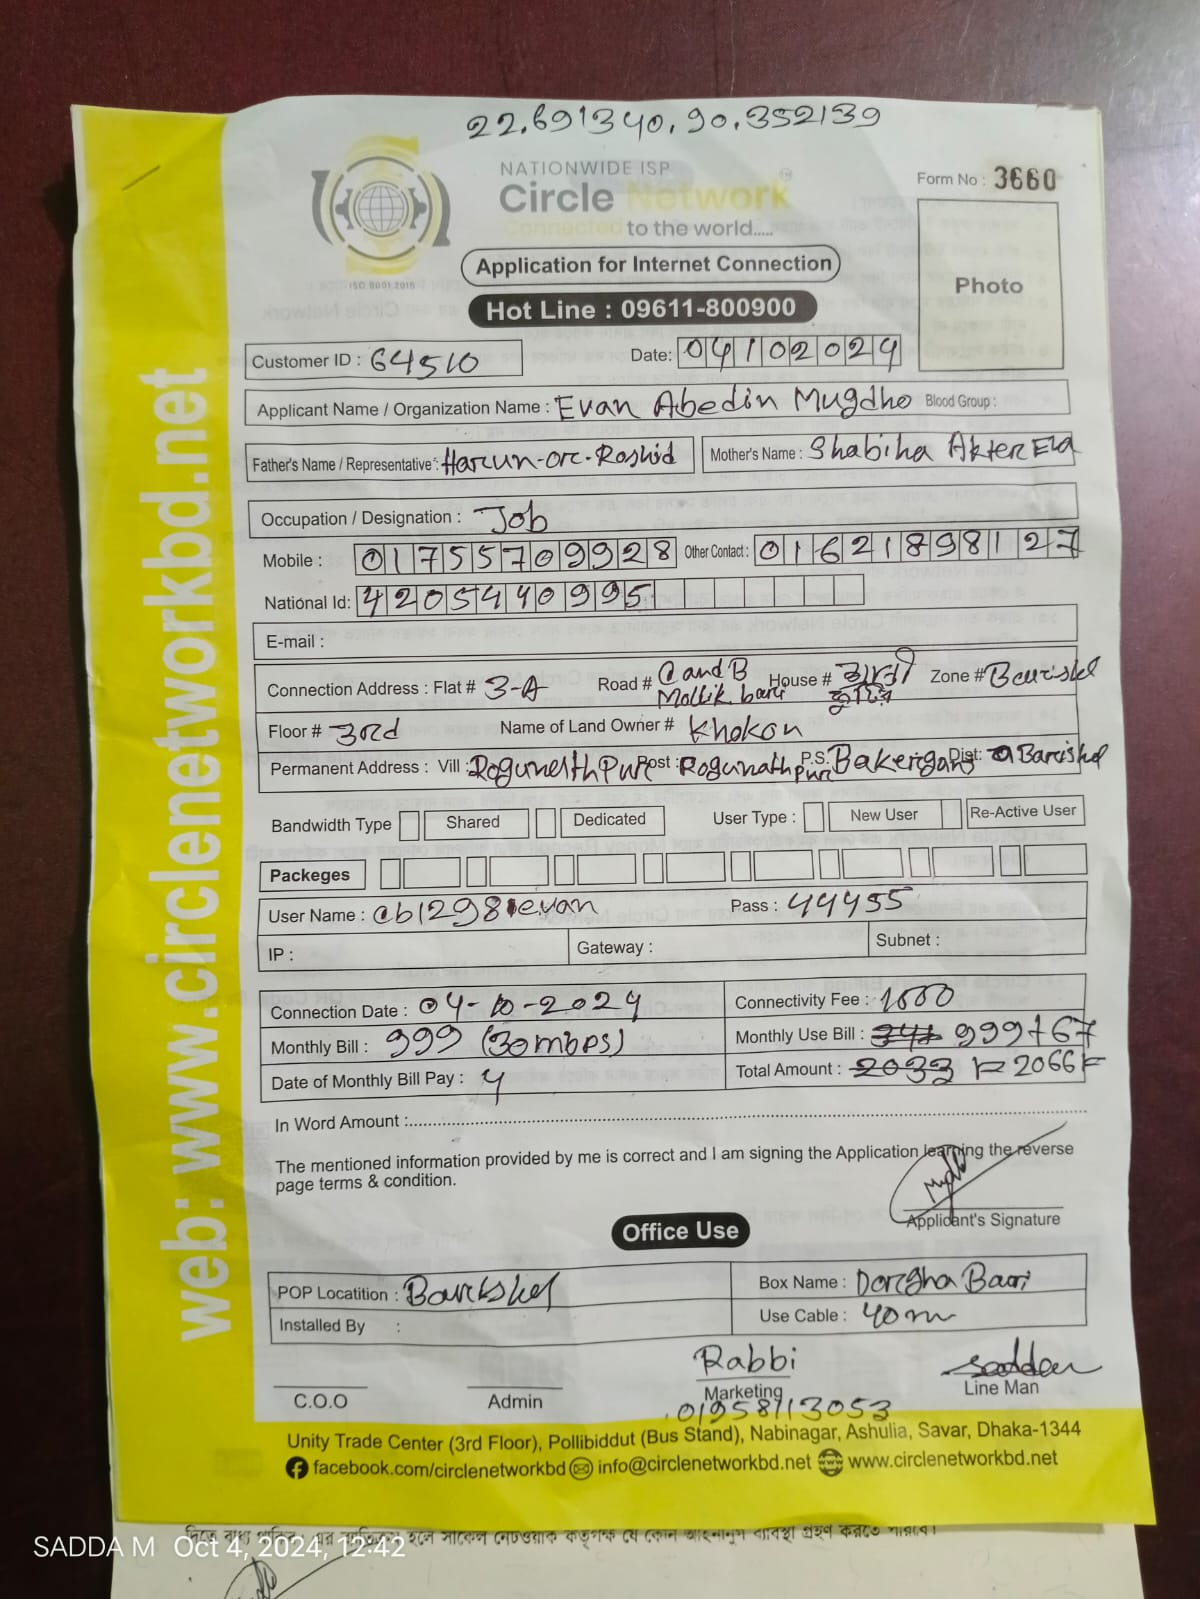 22.691340, 90.352139
NATIONWIDE ISP
Circle Network
Connected to the world.....
ISO 9001:2015
Form No : 3660
Photo
Application for Internet Connection
Hot Line : 09611-800900
Customer ID : 64510 Date: 04102024
Applicant Name / Organization Name : Evan Abedin Mugdho Blood Group :
Father's Name / Representative : Harun-or-Rashid Mother's Name : Shabiha Akter Ela
Occupation / Designation : Job
Mobile : 01755709928 Other Contact : 01621898127
National Id: 4205440995
E-mail :
Connection Address : Flat # 3-A Road # C and B Mollik bari House # Zone # Barishal
Floor # 3rd Name of Land Owner # Khokon
Permanent Address : Vill : Rogunathpur Post : Rogunathpur P.S. Bakerganj Dist: Barishal
Bandwidth Type Shared Dedicated User Type : New User Re-Active User
Packeges
User Name : cb1298evan Pass : 44455
IP : Gateway : Subnet :
Connection Date : 04-10-2024 Connectivity Fee : 1000
Monthly Bill : 999 (30mbps) Monthly Use Bill : 999+67
Date of Monthly Bill Pay : 4 Total Amount : 2033 = 2066
In Word Amount :
The mentioned information provided by me is correct and I am signing the Application learning the reverse
page terms & condition.
Applicant's Signature
Office Use
POP Locatition : Barishal Box Name : Dorgha Bari
Installed By : Use Cable : 40m
Rabbi saddam
C.O.O Admin Marketing Line Man
01958113053
Unity Trade Center (3rd Floor), Pollibiddut (Bus Stand), Nabinagar, Ashulia, Savar, Dhaka-1344
facebook.com/circlenetworkbd info@circlenetworkbd.net www.circlenetworkbd.net
web: www.circlenetworkbd.net
দিতে বাধ্য থাকিব। এর ব্যতিক্রম হলে সার্কেল নেটওয়ার্ক কর্তৃপক্ষ যে কোন আইনানুগ ব্যবস্থা গ্রহণ করতে পারবে।
SADDA M Oct 4, 2024, 12:42